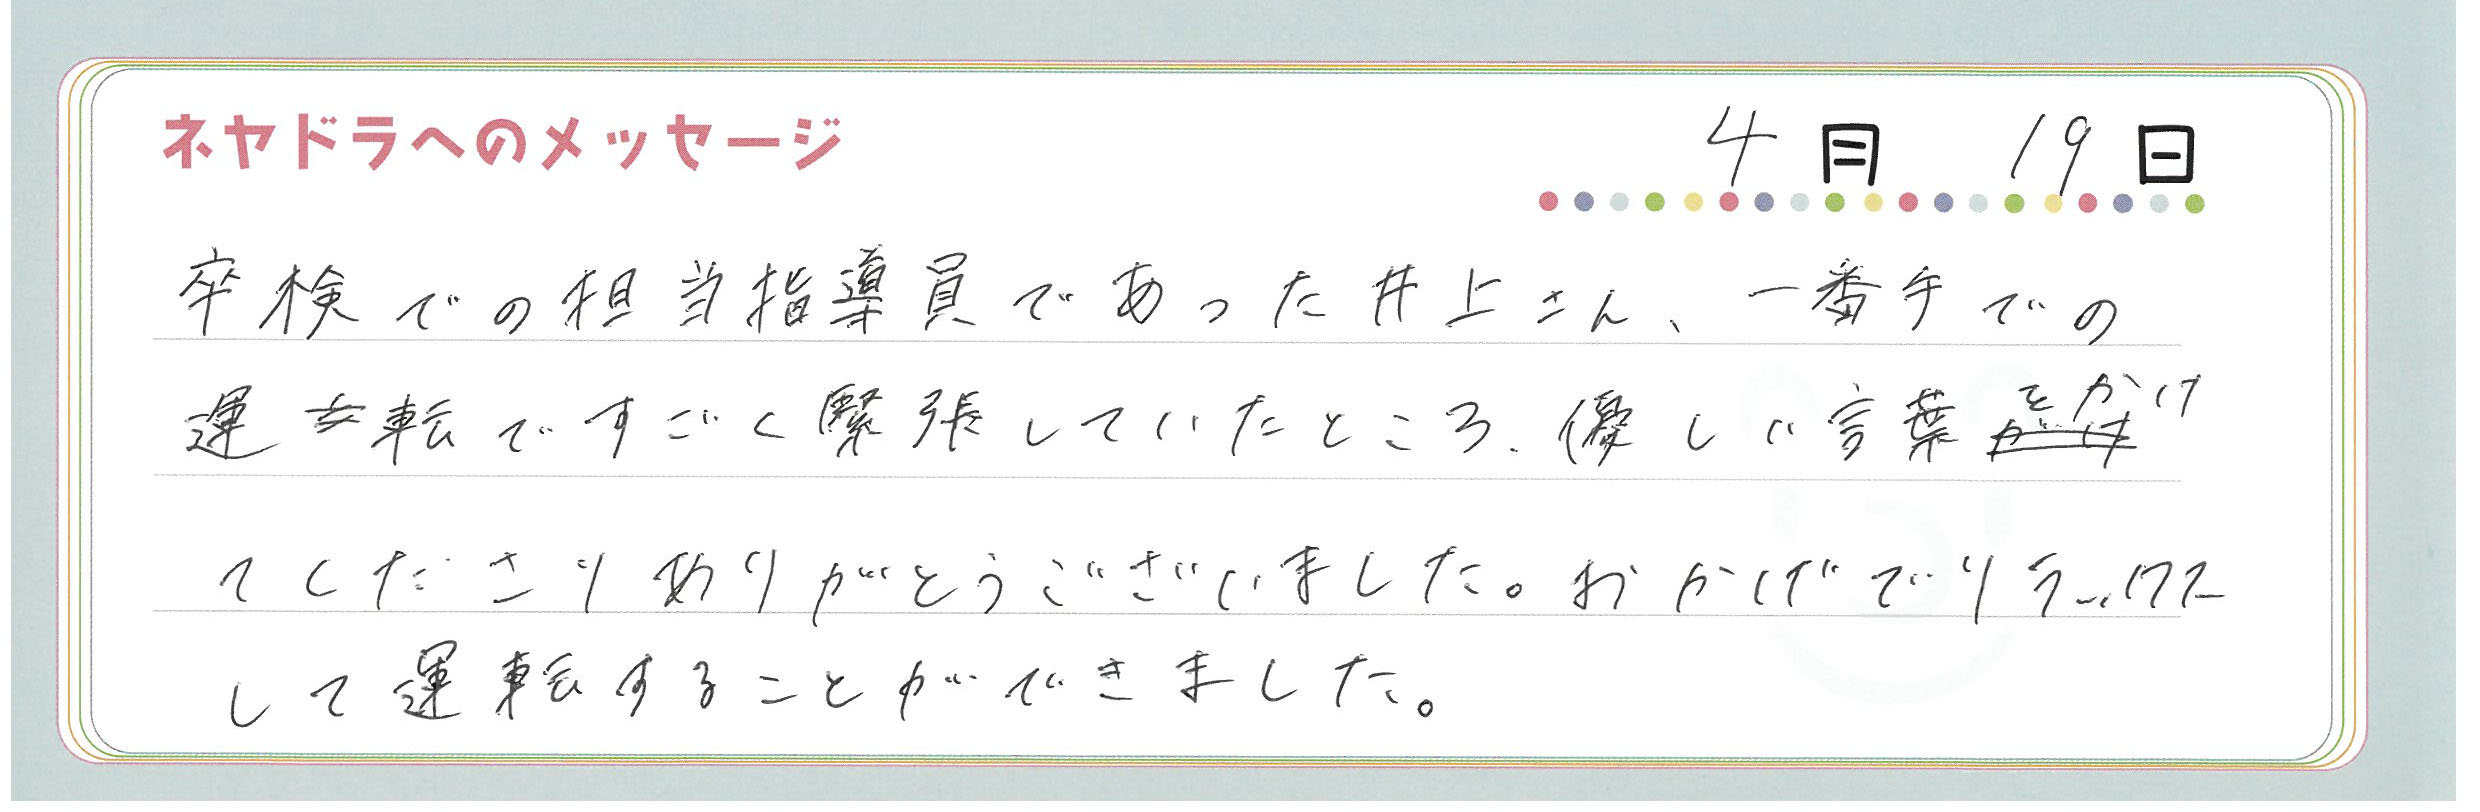 ネヤドラへのメッセージ
4月 19日
卒検での担当指導員であった井上さん、一番手での
運転ですごく緊張していたところ、優しい言葉をかけ
てくださりありがとうございました。おかげでリラックス
して運転することができました。